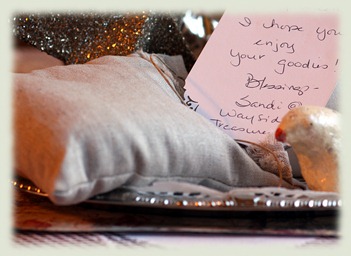 I hope you
enjoy
your goodies!
Blessings-
Sandi @
Wayside
Treasures